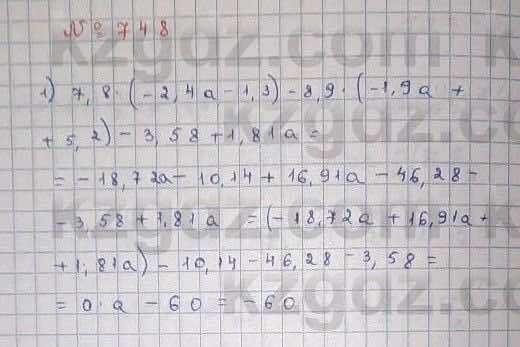 № 748
1) 7,8·(-2,4a-1,3)-8,9·(-1,9a +
+5,2)-3,58+1,81a=
=-18,72a-10,14+16,91a-46,28-
-3,58+1,81a =(-18,72a+16,91a+
+1,81a)-10,14-46,28-3,58=
=0·a-60=-60
kzgdz.com